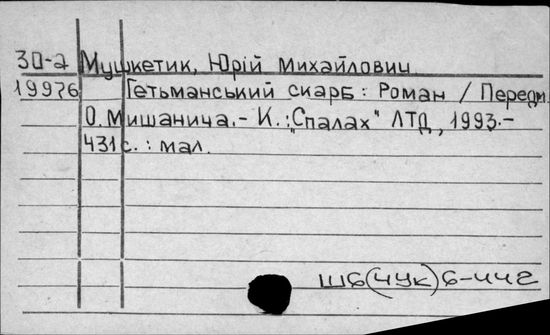 30-а Мушкетик, Юрій Михайлович
19976 Гетьманський скарб : Роман / Передм.
О. Мишанича. - К. : „Спалах" ЛТД, 1993. -
431 с. : мал.
Ш6(4УК)6-442